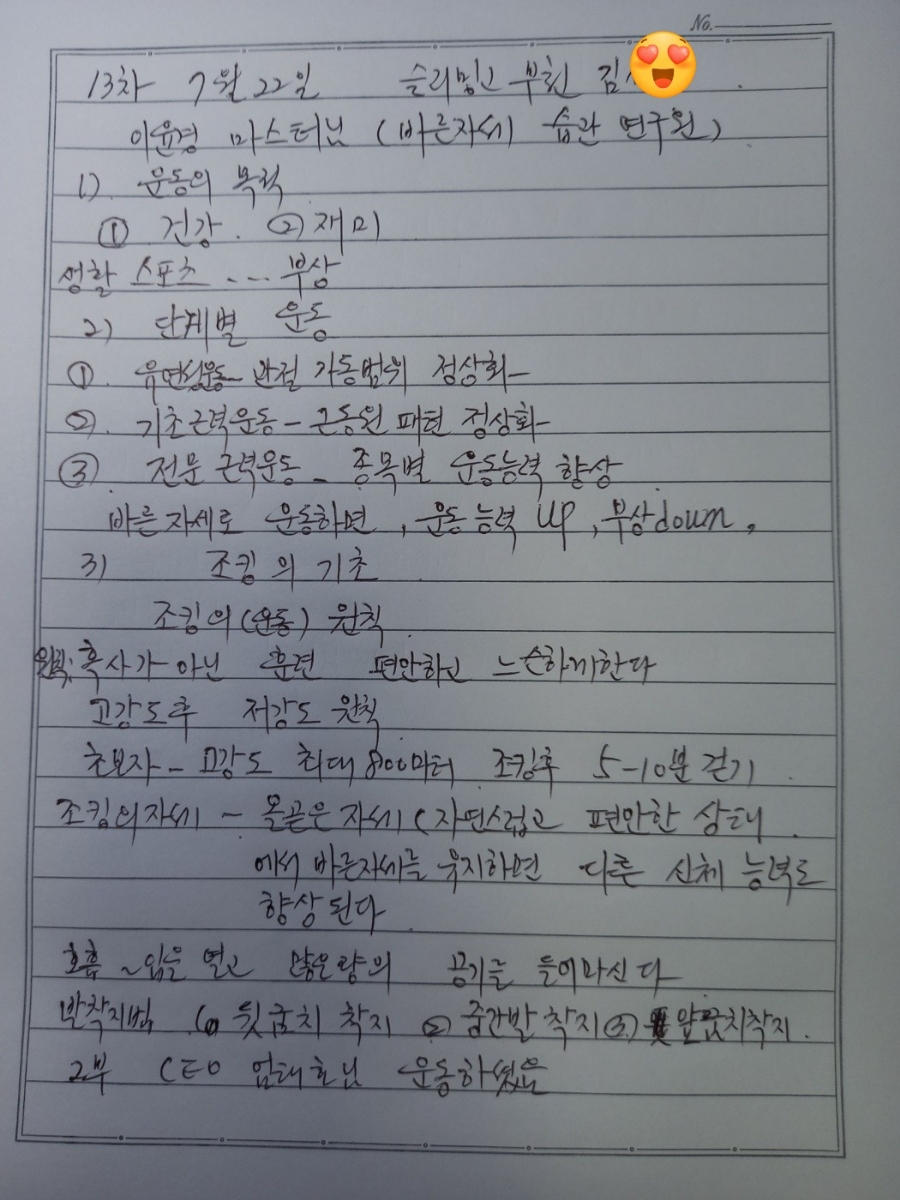 No.
13차 7월 22일 슬리밍고 부천 김
이윤경 마스터님 (바른자세 습관 연구원)
1) 운동의 목적
① 건강. ② 재미
생활 스포츠 --- 부상
2) 단계별 운동
①. 유연성운동 - 관절 가동범위 정상화-
②. 기초근력운동 - 근동원 패턴 정상화-
③ 전문 근력운동 - 종목별 운동능력 향상
바른자세로 운동하면, 운동능력 up, 부상down,
3) 조킹의 기초
조킹의(운동) 원칙
원칙: 혹사가 아닌 훈련 편안하고 느슨하게한다
고강도후 저강도 원칙
초보자 - 고강도 최대 800미터 조킹후 5-10분 걷기
조킹의자세 - 올곧은 자세 (자연스럽고 편안한 상태
에서 바른자세를 유지하면 다른 신체 능력도
향상된다
호흡 ~ 입을 열고 많은량의 공기를 들이마신다
발착지법 ① 뒷굼치 착지 ② 중간발 착지 ③ 앞굼치착지.
2부 CEO 엄태호님 운동하셨음